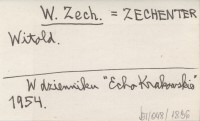 W. Zech. = ZECHENTER
Witold.
W dzienniku "Echo Krakowskie"
1954.